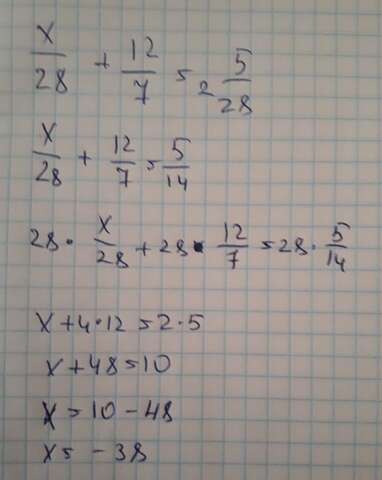 x/28 + 12/7 = 2 5/28
x/28 + 12/7 = 5/14
28 · x/28 + 28 · 12/7 = 28 · 5/14
x + 4 · 12 = 2 · 5
x + 48 = 10
x = 10 - 48
x = - 38